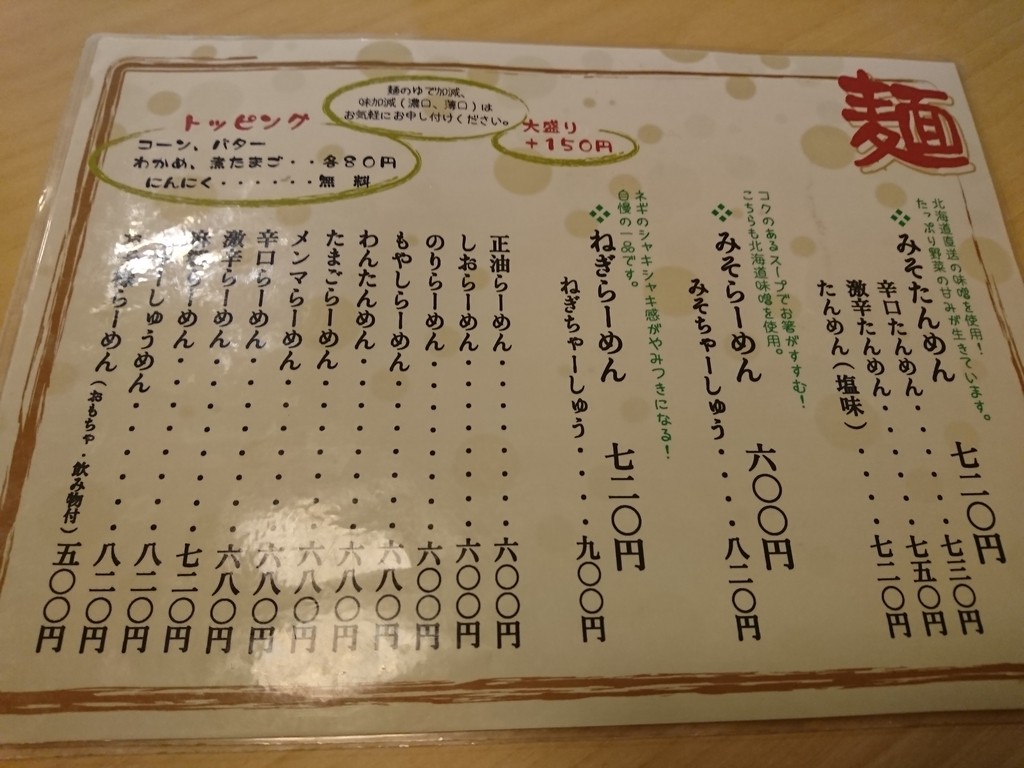 麺
北海道直送の味噌を使用!
たっぷり野菜の甘みが生きています。
みそたんめん 七二〇円
辛口たんめん・・・・・七三〇円
激辛たんめん・・・・・七五〇円
たんめん(塩味)・・・・七二〇円
コクのあるスープでお箸がすすむ!
こちらも北海道味噌を使用。
みそらーめん 六〇〇円
みそちゃーしゅう・・・・八二〇円
ネギのシャキシャキ感がやみつきになる!
自慢の一品です。
ねぎらーめん 七二〇円
ねぎちゃーしゅう・・・・九〇〇円
大盛り
+150円
麺のゆで加減、
味加減(濃口、薄口)は
お気軽にお申し付けください。
トッピング
コーン、バター
わかめ、煮たまご・・各80円
にんにく・・・・・・無 料
正油らーめん・・・・・六〇〇円
しおらーめん・・・・・六〇〇円
のりらーめん・・・・・六〇〇円
もやしらーめん・・・・六八〇円
わんたんめん・・・・・六八〇円
たまごらーめん・・・・六八〇円
メンマらーめん・・・・六八〇円
辛口らーめん・・・・・六八〇円
激辛らーめん・・・・・七二〇円
らーめん・・・・・八二〇円
ーしゅうめん・・・・八二〇円
らーめん(おもちゃ・飲み物付)五〇〇円